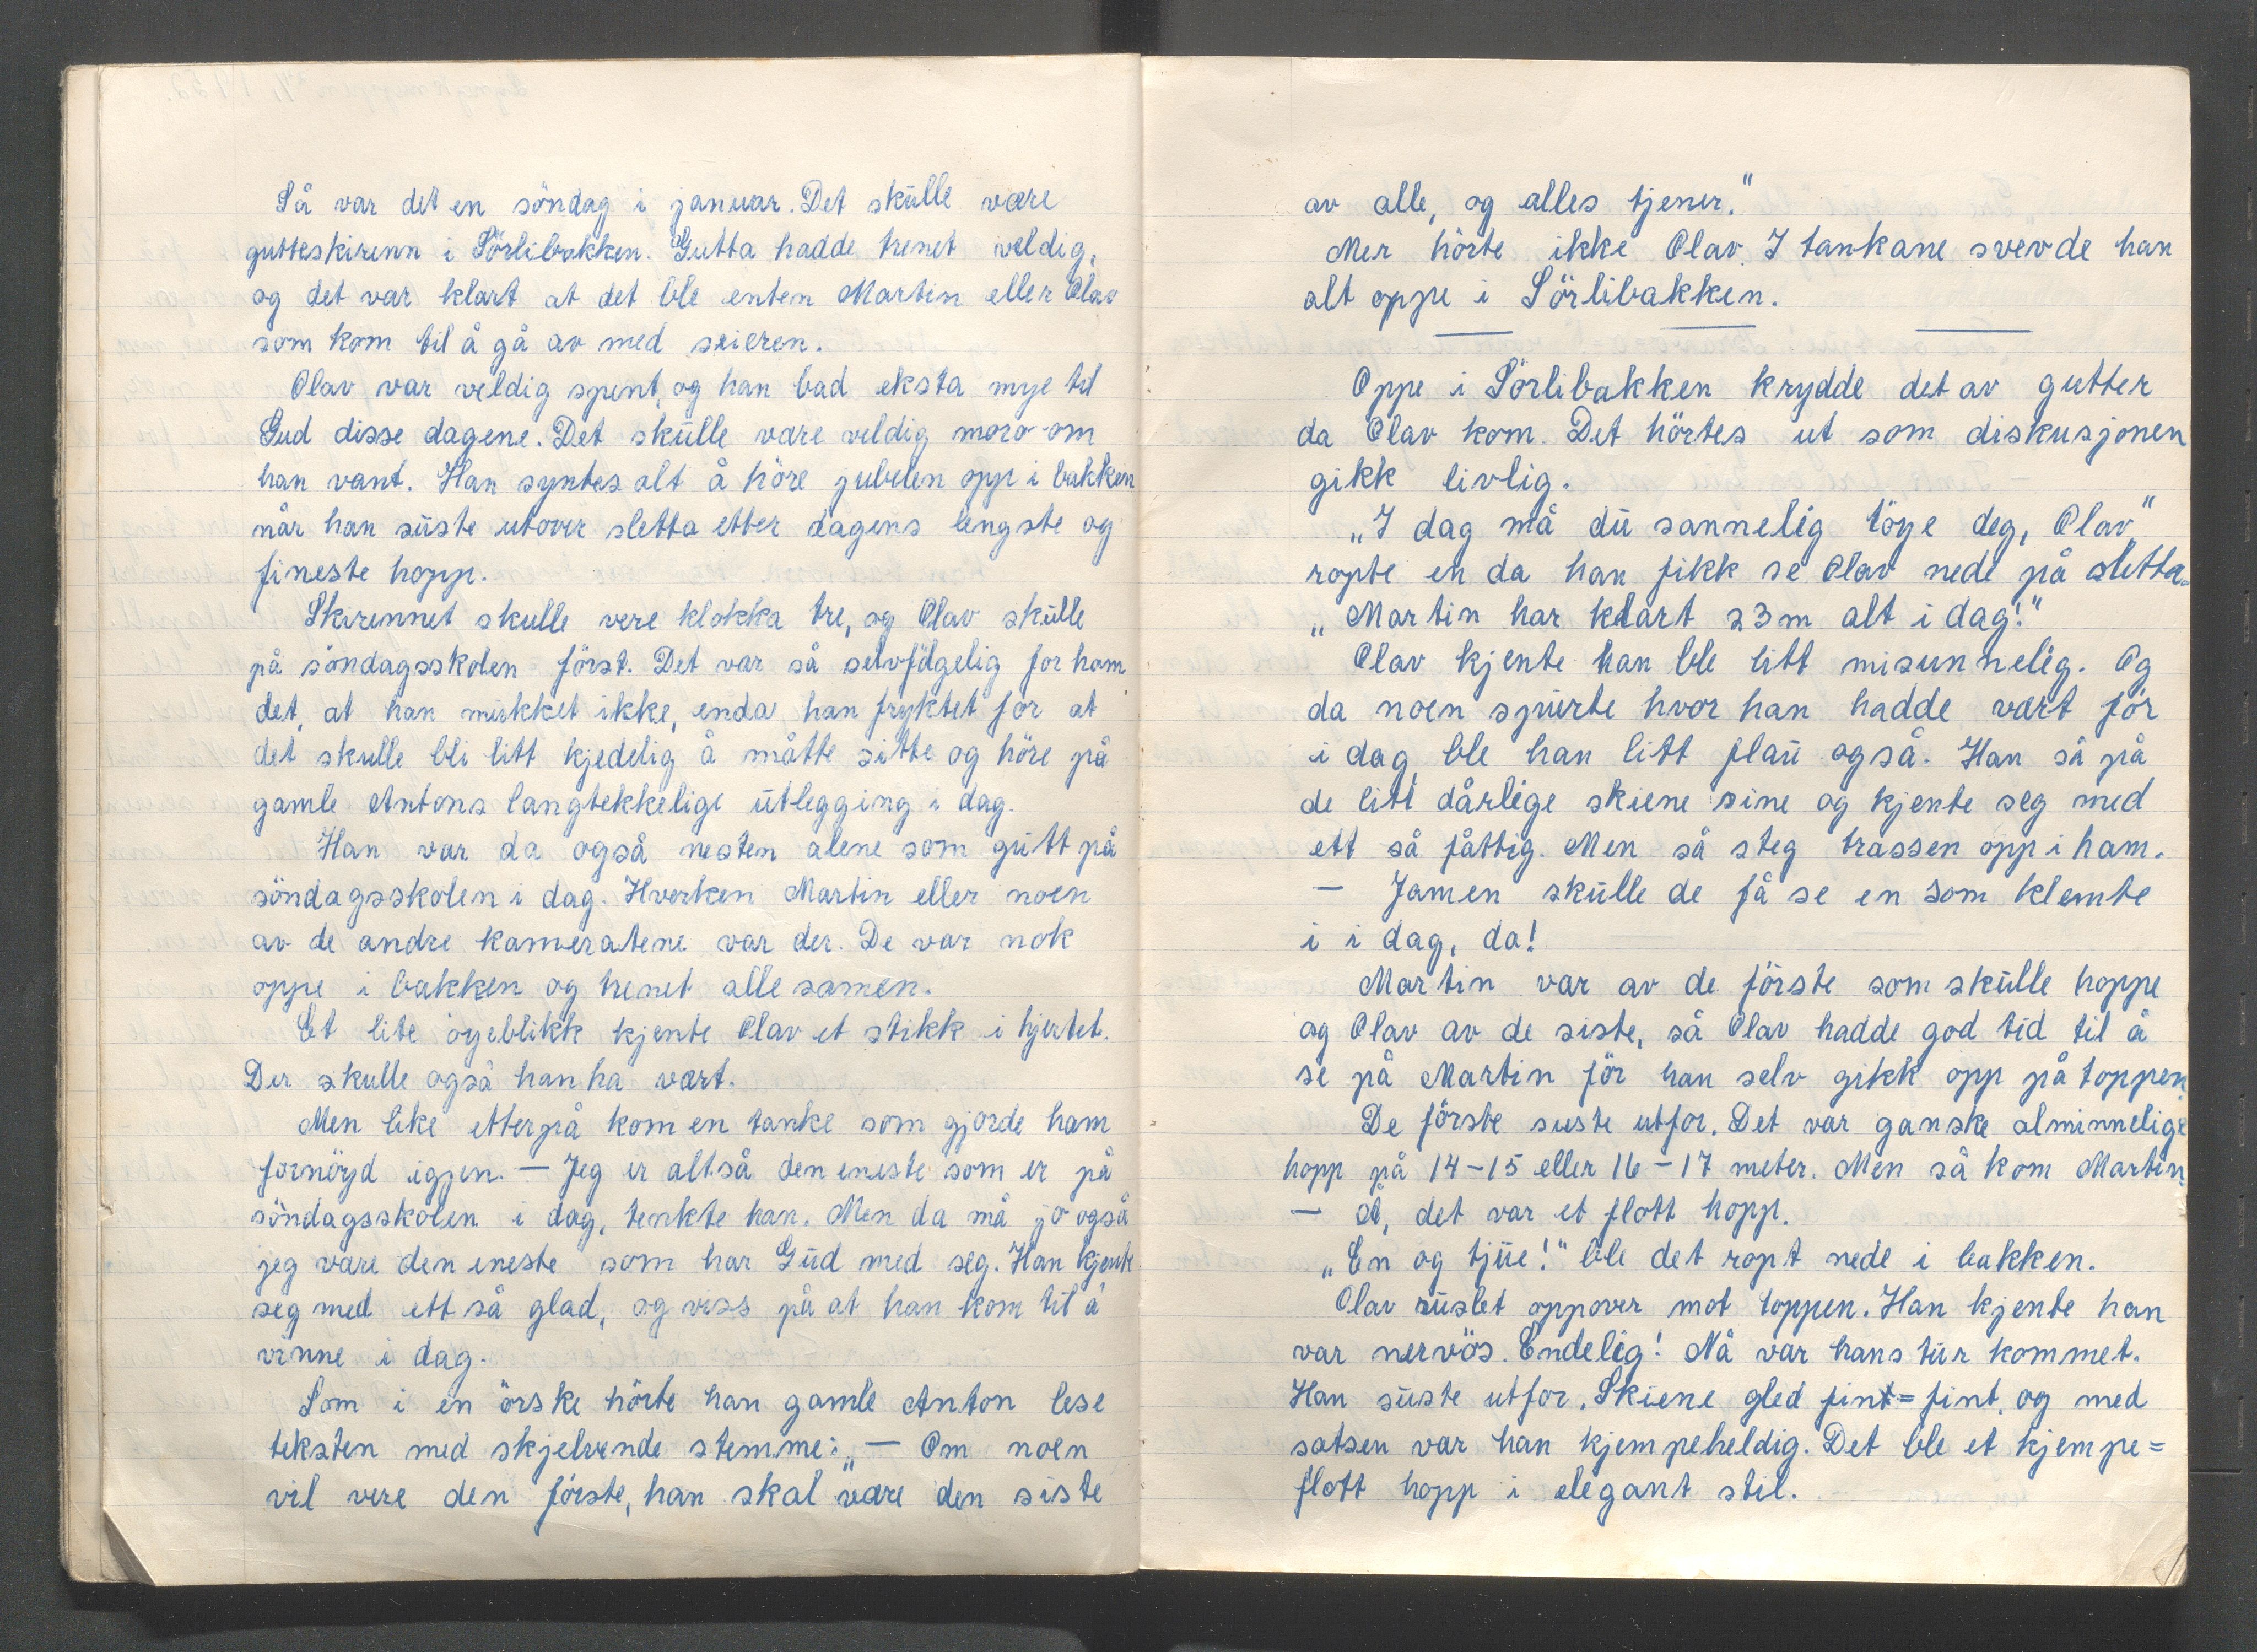 Så var det en söndag i januar. Det skulle være
gutteskirenn i Sörlibakken. Gutta hadde trenet veldig,
og det var klart at det ble enten Martin eller Olav
som kom til å gå av med seieren.
Olav var veldig spent, og han bad eksta mye til
Gud disse dagene. Det skulle være veldig moro om
han vant. Han syntes alt å höre jubelen opp i bakken
når han suste utover sletta etter dagens lengste og
fineste hopp.
Skirennet skulle vere klokka tre, og Olav skulle
på söndagsskolen först. Det var så selvfölgelig for ham
det, at han mukket ikke, enda han fryktet for at
det skulle bli litt kjedelig å måtte sitte og höre på
gamle Antons langtekkelige utlegging i dag.
Han var da også nesten alene som gutt på
söndagsskolen i dag. Hverken Martin eller noen
av de andre kameratene var der. De var nok
oppe i bakken og trenet alle samen.
Et lite öyeblikk kjente Olav et stikk i hjertet.
Der skulle også han ha vært.
Men like etterpå kom en tanke som gjorde ham
fornöyd igjen. — Jeg er altså den eneste som er på
söndagsskolen i dag, tenkte han. Men da må jo også
jeg være den eneste som har Gud med seg. Han kjente
seg med ett så glad, og viss på at han kom til å
vinne i dag.
Som i en örske hörte han gamle Anton lese
teksten med skjelvende stemme: „— Om noen
vil vere den förste, han skal være den siste
av alle, og alles tjener."
Mer hörte ikke Olav. I tankane svevde han
alt oppe i Sörlibakken.
Oppe i Sörlibakken krydde det av gutter
da Olav kom. Det hörtes ut som diskusjonen
gikk livlig.
„I dag må du sannelig töye deg, Olav"
ropte en da han fikk se Olav nede på sletta.
„Martin har klart 23 m alt i dag!"
Olav kjente han ble litt misunnelig. Og
da noen spurte hvor han hadde vært för
i dag, ble han litt flau også. Han så på
de litt dårlige skiene sine og kjente seg med
ett så fåttig. Men så steg trassen opp i ham.
— Jamen skulle de få se en som klemte
i i dag, da!
Martin var av de förste som skulle hoppe
og Olav av de siste, så Olav hadde god tid til å
se på Martin för han selv gikk opp på toppen.
De förste suste utfor. Det var ganske alminnelige
hopp på 14-15 eller 16-17 meter. Men så kom Martin.
— Å, det var et flott hopp.
„En og tjue!" ble det ropt nede i bakken.
Olav ruslet oppover mot toppen. Han kjente han
var nervös. Endelig! Nå var hans tur kommet.
Han suste utfor. Skiene gled fint=fint, og med
satsen var han kjempeheldig. Det ble et kjempe=
flott hopp i elegant stil.